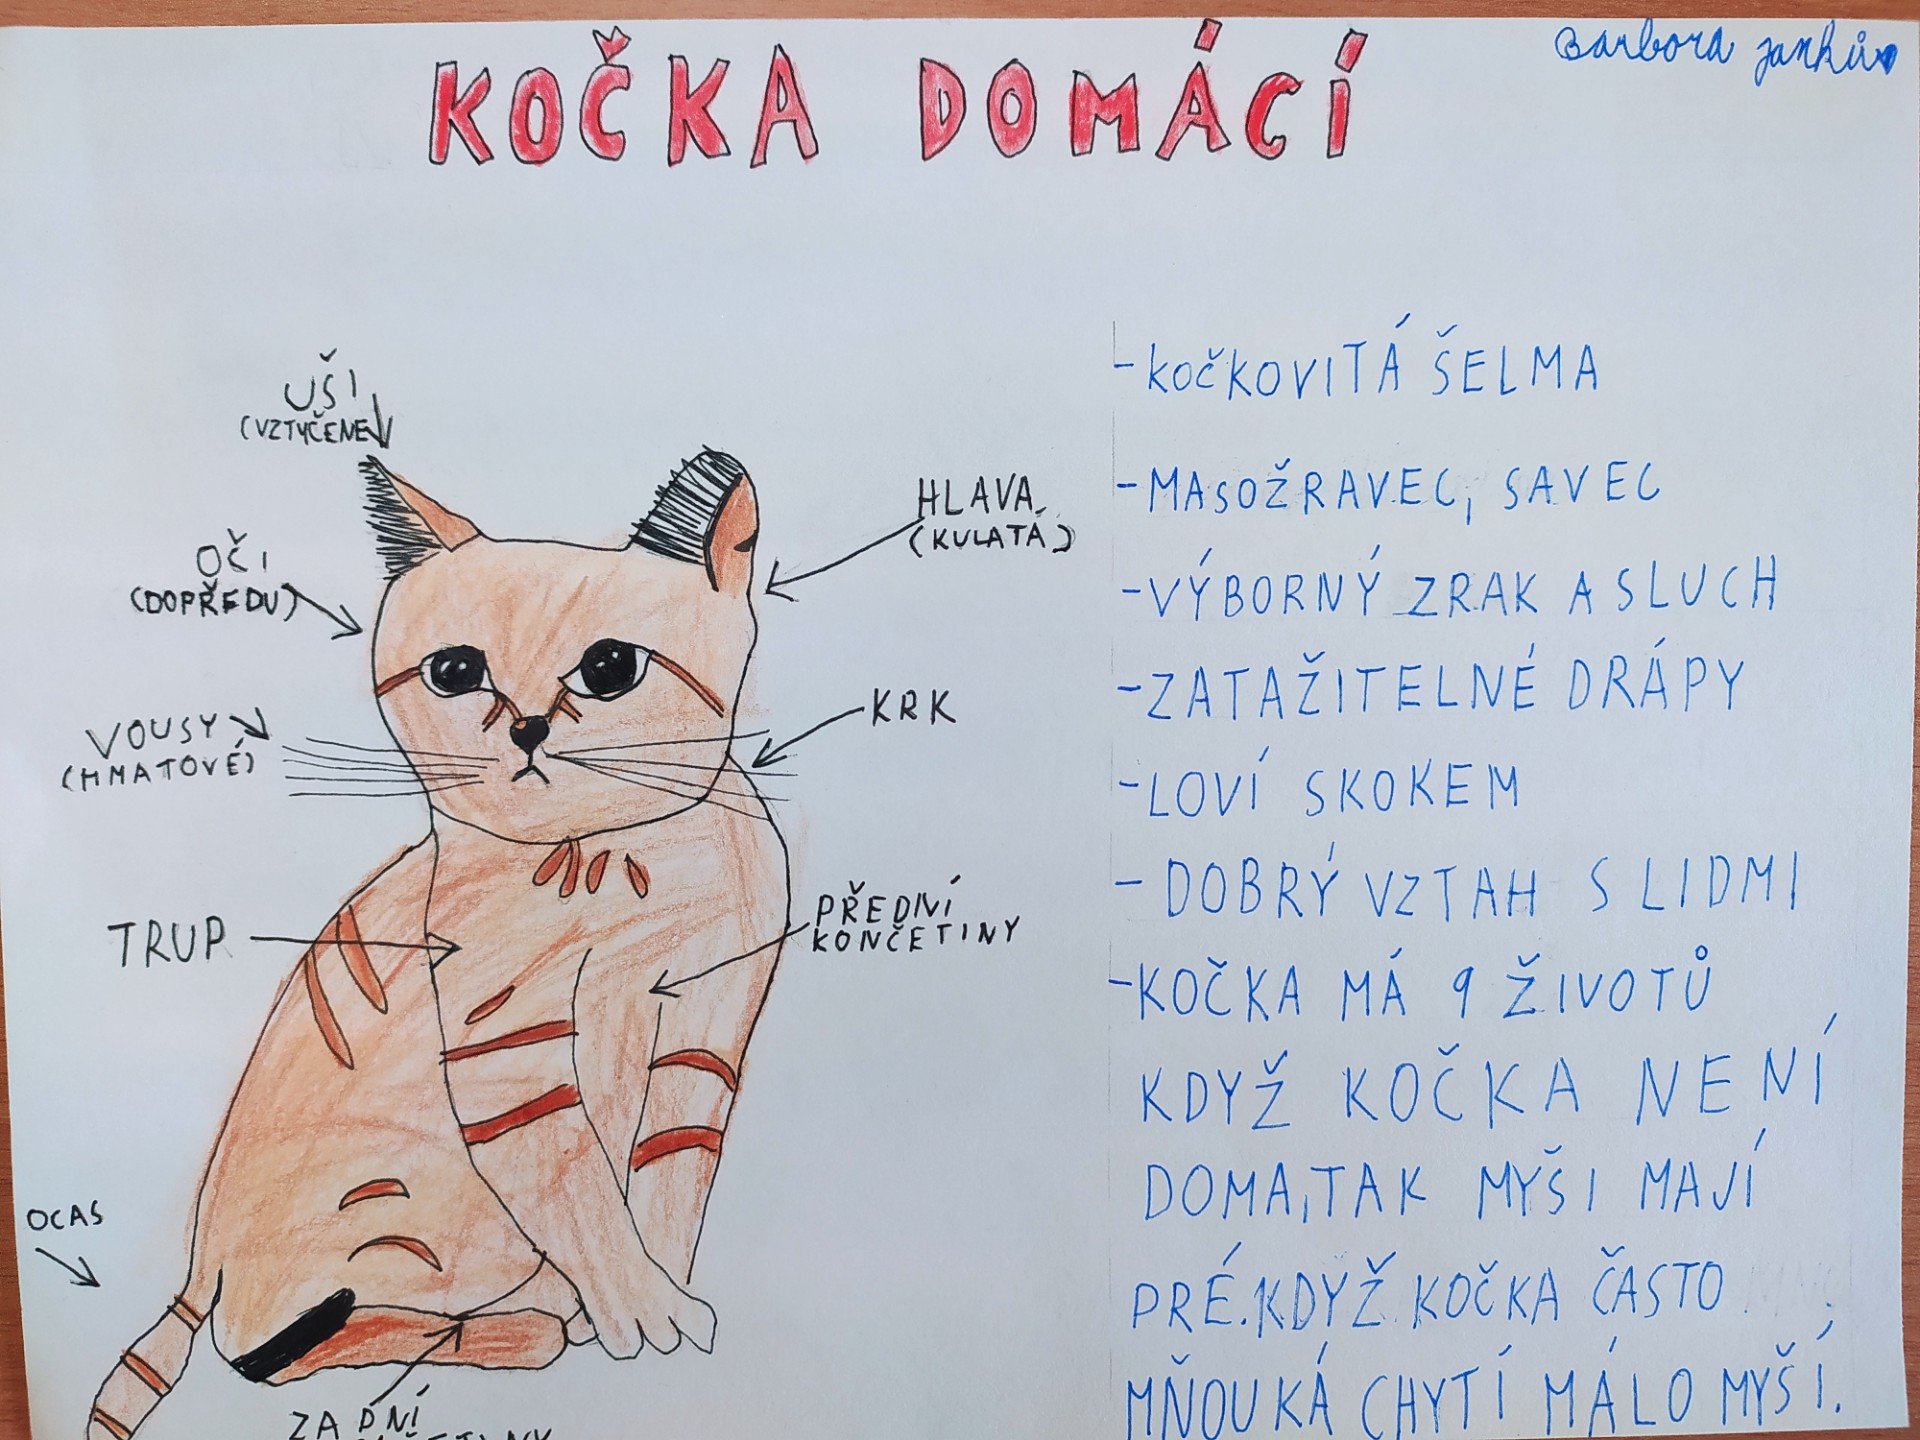 KOČKA DOMÁCÍ
Barbora Janků
UŠI
(VZTYČENÉ)
OČI
(DOPŘEDU)
VOUSY
(HMATOVÉ)
TRUP
OCAS
ZADNÍ
HLAVA
(KULATÁ)
KRK
PŘEDNÍ
KONČETINY
- KOČKOVITÁ ŠELMA
- MASOŽRAVEC, SAVEC
- VÝBORNÝ ZRAK A SLUCH
- ZATAŽITELNÉ DRÁPY
- LOVÍ SKOKEM
- DOBRÝ VZTAH S LIDMI
- KOČKA MÁ 9 ŽIVOTŮ
KDYŽ KOČKA NENÍ
DOMA, TAK MYŠI MAJÍ
PRÉ. KDYŽ KOČKA ČASTO
MŇOUKÁ CHYTÍ MÁLO MYŠÍ.